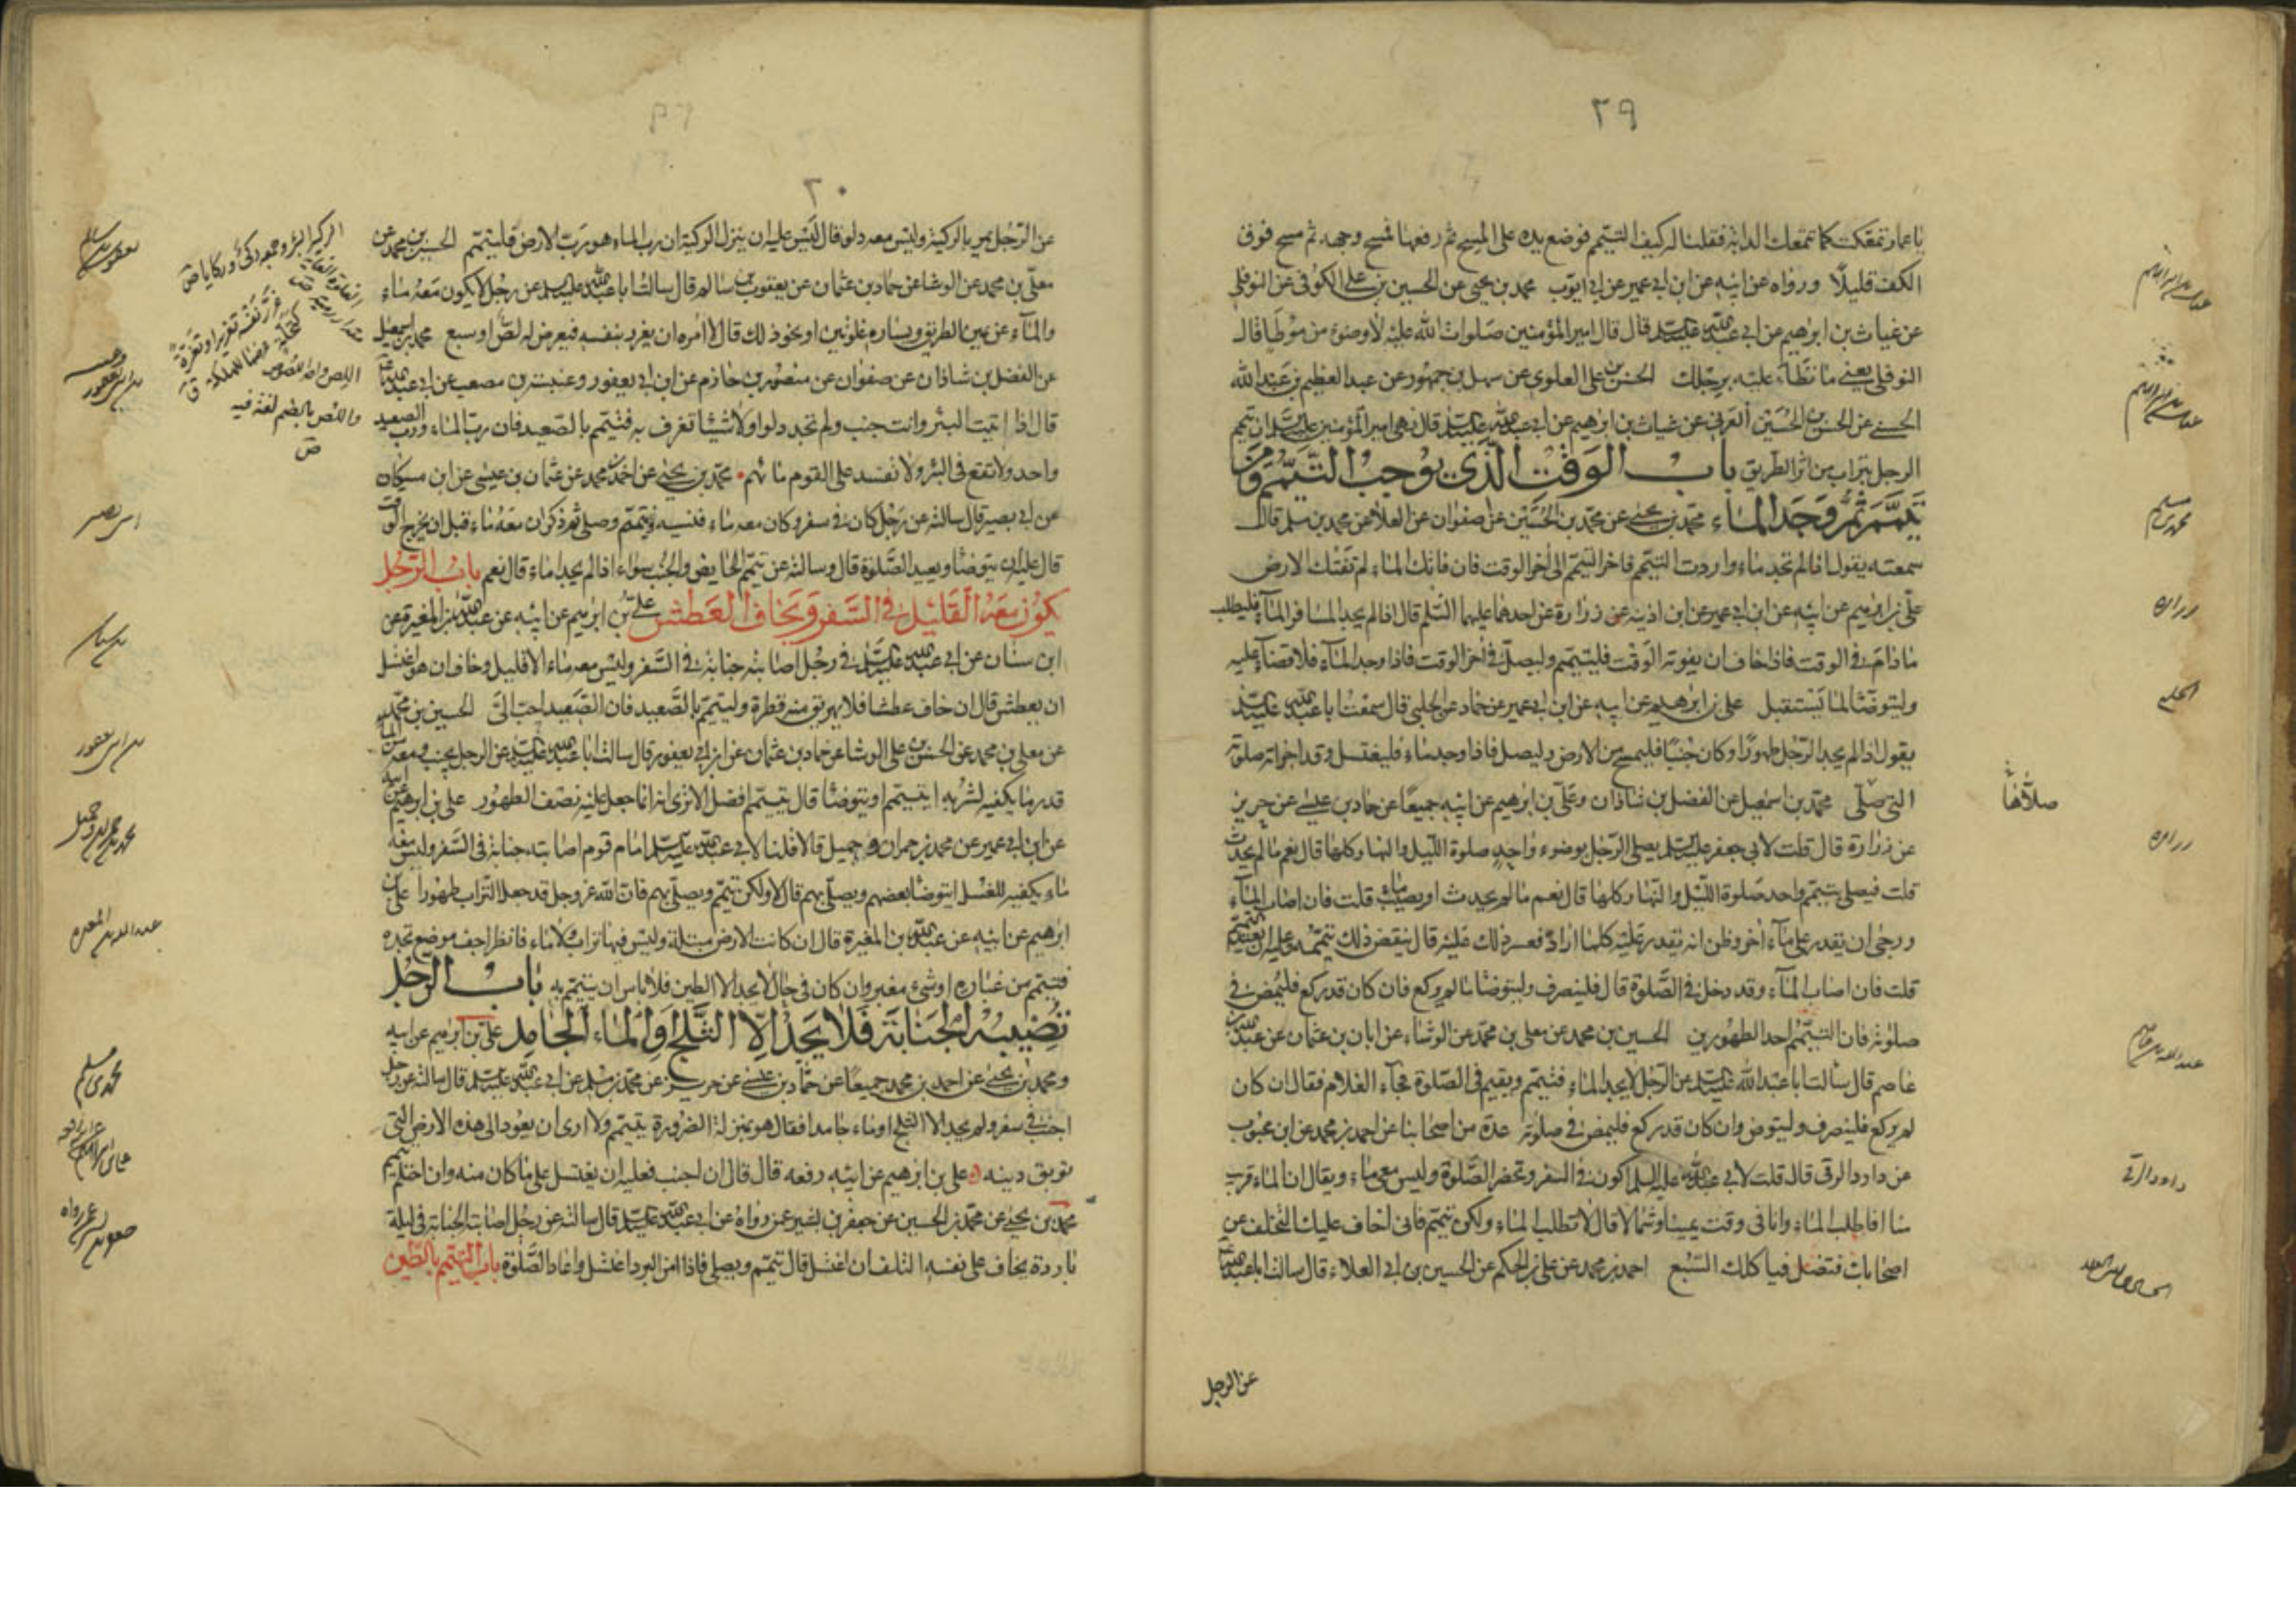 ٢٩
يا عمار تمعكت كما تتمعك الدابة فقلنا له كيف التيمم فوضع يده على المسح ثم رفعها فمسح وجهه ثم مسح فوق
الكف قليلا ورواه عن ابيه عن ابن ابي عمير عن ابي ايوب محمد بن يحيى عن الحسين بن علي الكوفي عن النوفلي
عن غياث بن ابرهيم عن ابي عبد الله عليه السلم قال قال امير المؤمنين صلوات الله عليه لا وضوء من موطأ قال
النوفلي يعني ما تطأ عليه برجلك الحسن بن علي العلوي عن سهل بن جمهور عن عبد العظيم بن عبد الله
الحسني عن الحسن بن الحسين العرني عن غياث بن ابرهيم عن ابي عبد الله عليه السلم قال نهى امير المؤمنين عليه السلم ان يتيمم
الرجل بتراب من اثر الطريق باب الوقت الذي يوجب التيمم ومن
تيمم ثم وجد الماء محمد بن يحيى عن محمد بن الحسين عن صفوان عن العلا عن محمد بن مسلم قال
سمعته يقول اذا لم تجد ماء واردت التيمم فاخر التيمم الى اخر الوقت فان فاتك الماء لم تفتك الارض
علي بن ابرهيم عن ابيه عن ابن ابي عمير عن ابن اذينه عن زرارة عن احدهما عليهما السلم قال اذا لم يجد المسافر الماء فليطلب
ما دام في الوقت فاذا خاف ان يفوته الوقت فليتيمم وليصل في اخر الوقت فاذا وجد الماء فلا قضاء عليه
وليتوضأ لما يستقبل علي بن ابرهيم عن ابيه عن ابن ابي عمير عن حماد عن الحلبي قال سمعت ابا عبد الله عليه السلم
يقول اذا لم يجد الرجل طهورا وكان جنبا فليمسح من الارض وليصل فاذا وجد ماء فليغتسل وقد اجزأته صلوته
التي صلى محمد بن اسمعيل عن الفضل بن شاذان وعلي بن ابرهيم عن ابيه جميعا عن حماد بن عيسى عن حريز
عن زرارة قال قلت لابي جعفر عليه السلم يصلي الرجل بوضوء واحد صلوة الليل والنهار كلها قال نعم ما لم يحدث
قلت فيصلي بتيمم واحد صلوة الليل والنهار كلها قال نعم ما لم يحدث او يصيب ماء قلت فان اصاب الماء
ورجى ان يقدر على ماء اخر وظن انه يقدر عليه كلما اراد فعسر ذلك عليه قال ينقض ذلك تيممه وعليه ان يعيد التيمم
قلت فان اصاب الماء وقد دخل في الصلوة قال فلينصرف وليتوضأ ما لم يركع فان كان قد ركع فليمض في
صلوته فان التيمم احد الطهورين الحسين بن محمد عن معلى بن محمد عن الوشاء عن ابان بن عثمان عن عبد الله بن
عاصم قال سالت ابا عبد الله عليه السلم عن الرجل لا يجد الماء فيتيمم ويقيم في الصلوة فجاء الغلام فقال ان كان
لم يركع فلينصرف وليتوض وان كان قد ركع فليمض في صلوته عدة من اصحابنا عن احمد بن محمد عن ابن محبوب
عن داود الرقي قال قلت لابي عبد الله عليه السلم اكون في السفر وتحضر الصلوة وليس معي ماء ويقال ان الماء قريب
منا افاطلب الماء وانا في وقت يمينا وشمالا قال لا تطلب الماء ولكن تيمم فاني اخاف عليك التخلف عن
اصحابك فتضل فياكلك السبع احمد بن محمد عن علي بن الحكم عن الحسين بن ابي العلاء قال سالت ابا عبد الله
عن الرجل
محمد بن مسلم
زراره
الحلبي
زراره
عبد الله بن عاصم
داود الرقي
الحسين بن ابي العلا
٣٠
عن الرجل يمر بالركية وليس معه دلو قال ليس عليه ان ينزل الركية ان رب الماء هو رب الارض فليتيمم الحسين بن محمد عن
معلى بن محمد عن الوشا عن حماد بن عثمان عن يعقوب بن سالم قال سالت ابا عبد الله عليه السلم عن رجل لا يكون معه ماء
والماء عن يمين الطريق ويساره غلوتين او نحو ذلك قال لا امره ان يغرر بنفسه فيعرض له لص او سبع محمد بن اسمعيل
عن الفضل بن شاذان عن صفوان عن منصور بن حازم عن ابن ابي يعفور وعنبسة بن مصعب عن ابي عبد الله
قال اذا اتيت البئر وانت جنب ولم تجد دلوا ولا شيئا تغرف به فتيمم بالصعيد فان رب الماء ورب الصعيد
واحد ولا تقع في البئر ولا تفسد على القوم ماءهم محمد بن يحيى عن احمد بن محمد عن عثمان بن عيسى عن ابن مسكان
عن ابي بصير قال سالته عن رجل كان في سفر وكان معه ماء فنسيه وتيمم وصلى ثم ذكر ان معه ماء قبل ان يخرج الوقت
قال عليه ان يتوضأ ويعيد الصلوة قال وسالته عن تيمم الحايض والجنب سواء اذا لم يجدا ماء قال نعم باب الرجل
يكون معه القليل في السفر ويخاف العطش علي بن ابرهيم عن ابيه عن عبد الله بن المغيرة عن
ابن سنان عن ابي عبد الله عليه السلم في رجل اصابته جنابة في السفر وليس معه ماء الا قليل وخاف ان هو اغتسل
ان يعطش قال ان خاف عطشا فلا يهريق منه قطرة وليتيمم بالصعيد فان الصعيد احب الي الحسين بن محمد
عن معلى بن محمد عن الحسن بن علي الوشا عن حماد بن عثمان عن ابن ابي يعفور قال سالت ابا عبد الله عليه السلم عن الرجل يجنب ومعه من الماء
قدر ما يكفيه لشربه ايتيمم او يتوضأ قال يتيمم افضل الا ترى انه انما جعل عليه نصف الطهور علي بن ابرهيم عن ابيه
عن ابن ابي عمير عن محمد بن حمران وجميل قالا قلنا لابي عبد الله عليه السلم امام قوم اصابته جنابة في السفر وليس معه
ماء يكفيه للغسل ايتوضأ بعضهم ويصلي بهم قال لا ولكن يتيمم ويصلي بهم فان الله عز وجل قد جعل التراب طهورا علي بن
ابرهيم عن ابيه عن عبد الله بن المغيرة قال ان كانت الارض مبتلة وليس فيها تراب ولا ماء فانظر اجف موضع تجده
فتيمم من غباره او شيء مغبر وان كان في حال لا يجد الا الطين فلا باس ان يتيمم به باب الرجل
تصيبه الجنابة فلا يجد الا الثلج والماء الجامد علي بن ابرهيم عن ابيه
ومحمد بن يحيى عن احمد بن محمد جميعا عن حماد بن عيسى عن حريز عن محمد بن مسلم عن ابي عبد الله عليه السلم قال سالته عن رجل
اجنب في سفر ولم يجد الا الثلج او ماء جامدا فقال هو بمنزلة الضرورة يتيمم ولا ارى ان يعود الى هذه الارض التي
توبق دينه علي بن ابرهيم عن ابيه رفعه قال قال ان اجنب فعليه ان يغتسل على ما كان منه وان احتلم تيمم
محمد بن يحيى عن محمد بن الحسين عن جعفر بن بشير عمن رواه عن ابي عبد الله عليه السلم قال سالته عن رجل اصابته الجنابة في ليلة
باردة يخاف على نفسه التلف ان اغتسل قال يتيمم ويصلي فاذا امن البرد اغتسل واعاد الصلوة باب التيمم بالطين
الركية البئر وجمعه ركي وركايا ص
يعقوب بن سالم
ابن ابي يعفور
ابو بصير
ابن سنان
ابن ابي يعفور
محمد بن حمران وجميل
عبد الله بن المغيره
محمد بن مسلم